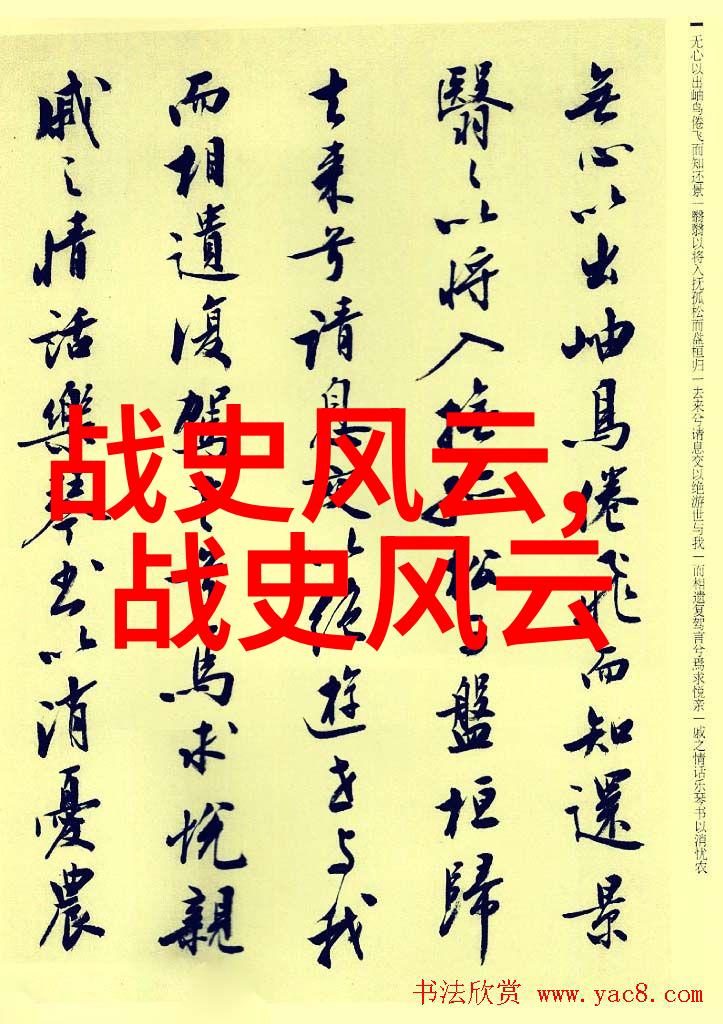 无心以出岫鸟倦飞而知还景一翳翳以将入抚孤松而盘桓归一去来兮请息交以绝游世与我一而相遗复驾言兮焉求悦亲一戚之情话乐琴书以消忧农
無心以出岫鳥倦飛而知還景
翳々以将入撫孤松而盤桓歸
去来兮請息交以絶遊世与我
而相遺復駕言兮焉求悦親
戚之情話樂琴書以消憂農
战史风云,
战史风云
书法欣赏 www.yac8.com